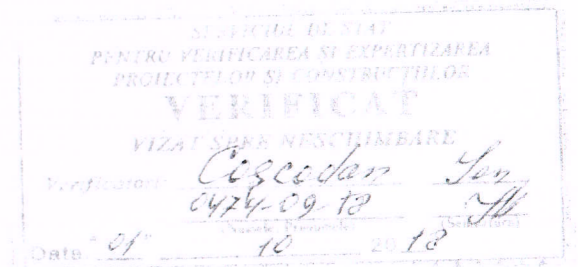 SERVICIUL DE STAT
PENTRU VERIFICAREA ŞI EXPERTIZAREA
PROIECTELOR ŞI CONSTRUCŢIILOR
VERIFICAT
VIZAT SPRE NESCHIMBARE
Verificatorii Coşcodan
0474-09-18
(Numele Prenumele) (Semnătura)
Data "01" 10 20 18